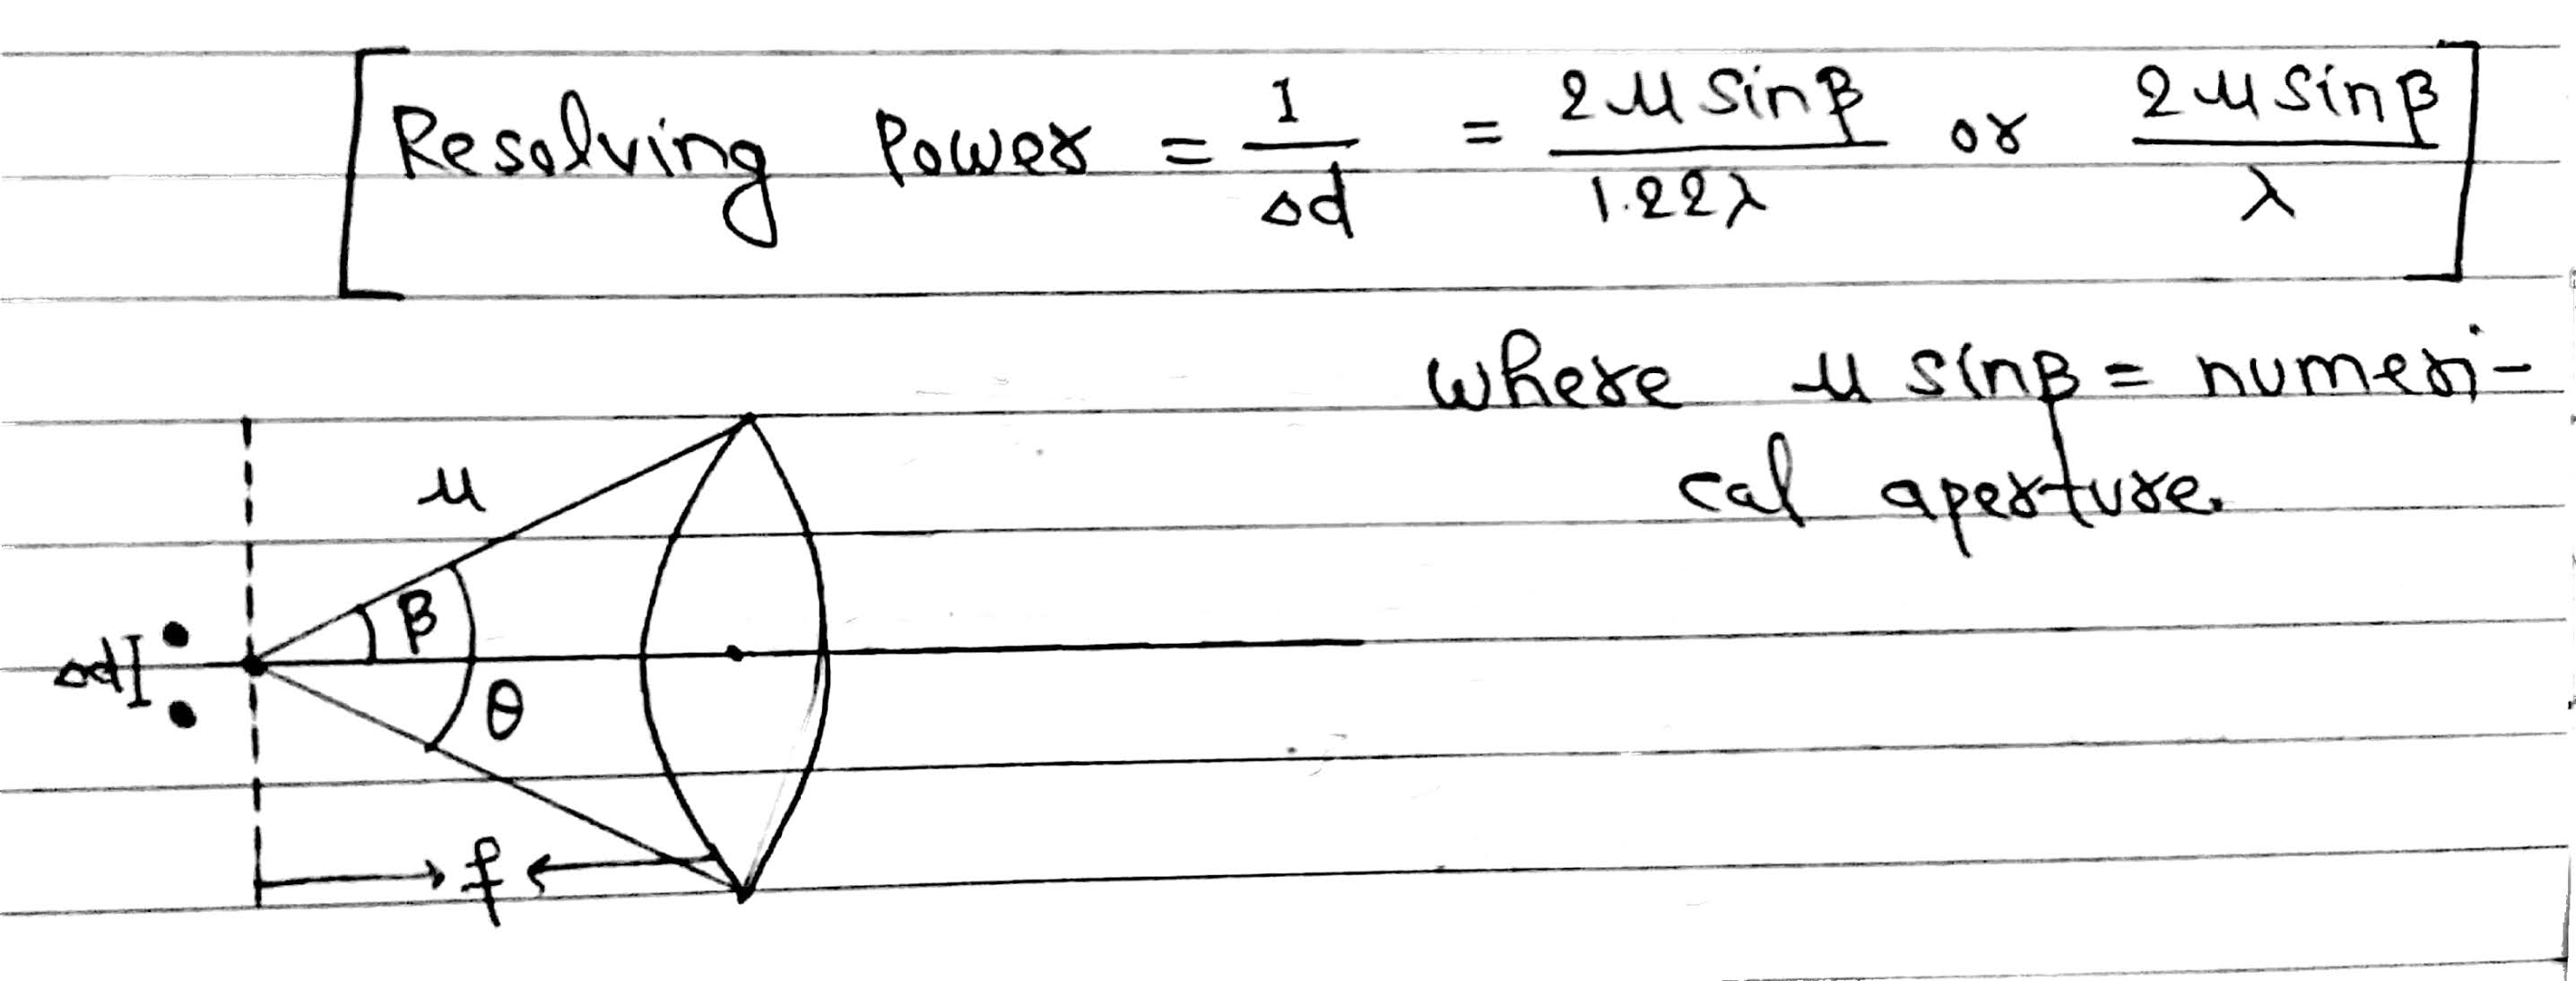 Resolving Power = 1/Δd = 2μ sinβ/1.22λ or 2μ sinβ/λ
where μ sinβ = numeri-
cal aperture.
μ
β
ΔdI
θ
f